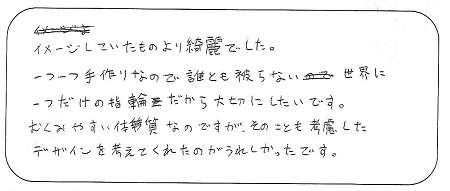 イメージしていたものより綺麗でした。
一つ一つ手作りなので誰とも被らない世界に
一つだけの指輪だから大切にしたいです。
むくみやすい体質なのですが、そのことも考慮した
デザインを考えてくれたのがうれしかったです。